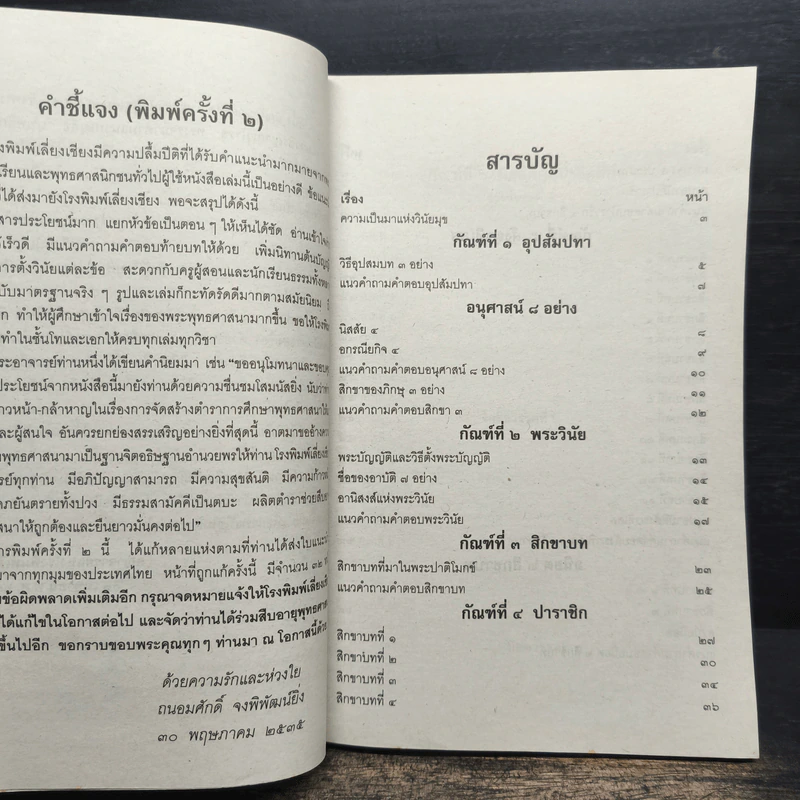 คำชี้แจง (พิมพ์ครั้งที่ ๒)
งพิมพ์เลี่ยงเชียงมีความปลื้มปีติที่ได้รับคำแนะนำมากมายจาก
เรียนและพุทธศาสนิกชนทั่วไปผู้ใช้หนังสือเล่มนี้เป็นอย่างดี
ได้ส่งมายังโรงพิมพ์เลี่ยงเชียง พอจะสรุปได้ดังนี้
สารประโยชน์มาก แยกหัวข้อเป็นตอน ๆ ให้เห็นได้ชัด อ่านเข้าใจ
เร็วดี มีแนวคำถามคำตอบท้ายบทให้ด้วย เพิ่มนิทานต้นบัญญั
ารตั้งวินัยแต่ละข้อ สะดวกกับครูผู้สอนและนักเรียนธรรม
บับมาตรฐานจริง ๆ รูปและเล่มก็กะทัดรัดดีมากตามสมัยนิยม
ก ทำให้ผู้ศึกษาเข้าใจเรื่องของพระพุทธศาสนามากขึ้น ขอให้โรงพิม
ทำในชั้นโทและเอกให้ครบทุกเล่มทุกวิชา
ระอาจารย์ท่านหนึ่งได้เขียนคำนิยมมา เช่น “ขออนุโมทนาและขอบ
ประโยชน์จากหนังสือนี้มายังท่านด้วยความชื่นชมโสมนัสยิ่ง นับว่า
าวหน้า-กล้าหาญในเรื่องการจัดสร้างตำราการศึกษาพุทธศาสนา
ละผู้สนใจ อันควรยกย่องสรรเสริญอย่างยิ่งที่สุดนี้ อาตมาขออ้าง
พุทธศาสนามาเป็นฐานจิตอธิษฐานอำนวยพรให้ท่าน โรงพิมพ์เลี่ยง
รย์ทุกท่าน มีอภิปัญญาสามารถ มีความสุขสันติ มีความก้าว
ภยันตรายทั้งปวง มีธรรมสามัคคีเป็นตบะ ผลิตตำราช่วยสืบ
สนาให้ถูกต้องและยืนยาวมั่นคงต่อไป”
ารพิมพ์ครั้งที่ ๒ นี้ ได้แก้หลายแห่งตามที่ท่านได้ส่งใบแนะ
มาจากทุกมุมของประเทศไทย หน้าที่ถูกแก้ครั้งนี้ มีจำนวน ๓๒
ข้อผิดพลาดเพิ่มเติมอีก กรุณาจดหมายแจ้งให้โรงพิมพ์เลี่ยง
ได้แก้ไขในโอกาสต่อไป และจัดว่าท่านได้ร่วมสืบอายุพุทธศา
ขึ้นไปอีก ขอกราบขอบพระคุณทุก ๆ ท่านมา ณ โอกาสนี้ด้วย
ด้วยความรักและห่วงใย
ถนอมศักดิ์ จงพิพัฒน์ยิ่ง
๓๐ พฤษภาคม ๒๕๓๕
สารบัญ
เรื่อง หน้า
ความเป็นมาแห่งวินัยมุข ๓
กัณฑ์ที่ ๑ อุปสัมปทา
วิธีอุปสมบท ๓ อย่าง ๕
แนวคำถามคำตอบอุปสัมปทา ๗
อนุศาสน์ ๘ อย่าง
นิสสัย ๔ ๘
อกรณียกิจ ๔ ๙
แนวคำถามคำตอบอนุศาสน์ ๘ อย่าง ๑๐
สิกขาของภิกษุ ๓ อย่าง ๑๑
แนวคำถามคำตอบสิกขา ๓ ๑๒
กัณฑ์ที่ ๒ พระวินัย
พระบัญญัติและวิธีตั้งพระบัญญัติ ๑๓
ชื่อของอาบัติ ๗ อย่าง ๑๔
อานิสงส์แห่งพระวินัย ๑๕
แนวคำถามคำตอบพระวินัย ๑๗
กัณฑ์ที่ ๓ สิกขาบท
สิกขาบทที่มาในพระปาติโมกข์ ๒๓
แนวคำถามคำตอบสิกขาบท ๒๕
กัณฑ์ที่ ๔ ปาราชิก
สิกขาบทที่ ๑ ๒๗
สิกขาบทที่ ๒ ๓๐
สิกขาบทที่ ๓ ๓๔
สิกขาบทที่ ๔ ๓๖